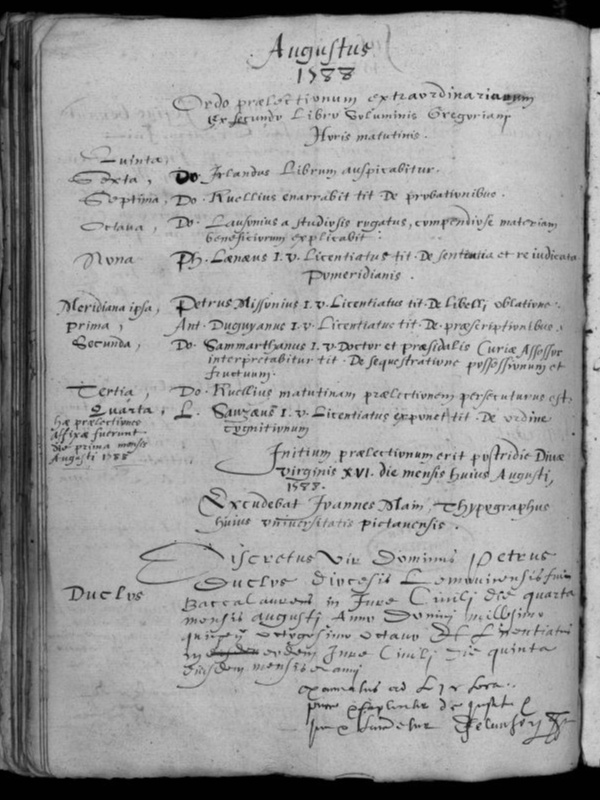 Augustus
1588
Ordo prælectionum extraordinariarum
Ex secundo Libro Voluminis Gregoriani
Horis matutinis.
Quinta,
Sexta, Do. Irlandus Librum auspicabitur.
Septima, Do. Ruellius enarrabit tit. De probationibus.
Octava, Do. Lausonius a studiosis rogatus, compendiose materiam
beneficiorum explicabit.
Nona Ph. Lænæus I. v. Licentiatus tit. De sententia et re iudicata
Pomeridianis.
Meridiana ipsa, Petrus Missonius I. v. Licentiatus tit. De Libelli oblatione.
prima, Ant. Duguyanus I. v. Licentiatus tit. De præscriptionibus.
Secunda, Do. Sammarthanus I. v. Doctor et præsidalis Curiæ Assessor
interpretabitur tit. De sequestratione possessionum et
fructuum.
Tertia, Do. Ruellius matutinam prælectionem persecuturus est.
Quarta, L. Sauzæus I. v. Licentiatus exponet tit. De ordine
cognitionum
hæ prælectiones
affixæ fuerunt
die prima mensis
Augusti 1588
Initium prælectionum erit postridie Divæ
Virginis XVI. die mensis huius Augusti,
1588.
Excudebat Ioannes Main, Thypographus
huius universitatis pictavensis.
Duclos
Discretus Vir Dominus Petrus
Duclos diocesis Lemovicensis fuit
Baccalaureus in Iure Civili die quarta
mensis augusti Anno Domini millesimo
quingen octogesimo octavo Et Licentiatus
in eodem Iure Civili die quinta
eiusdem mensis et anni
ad
de